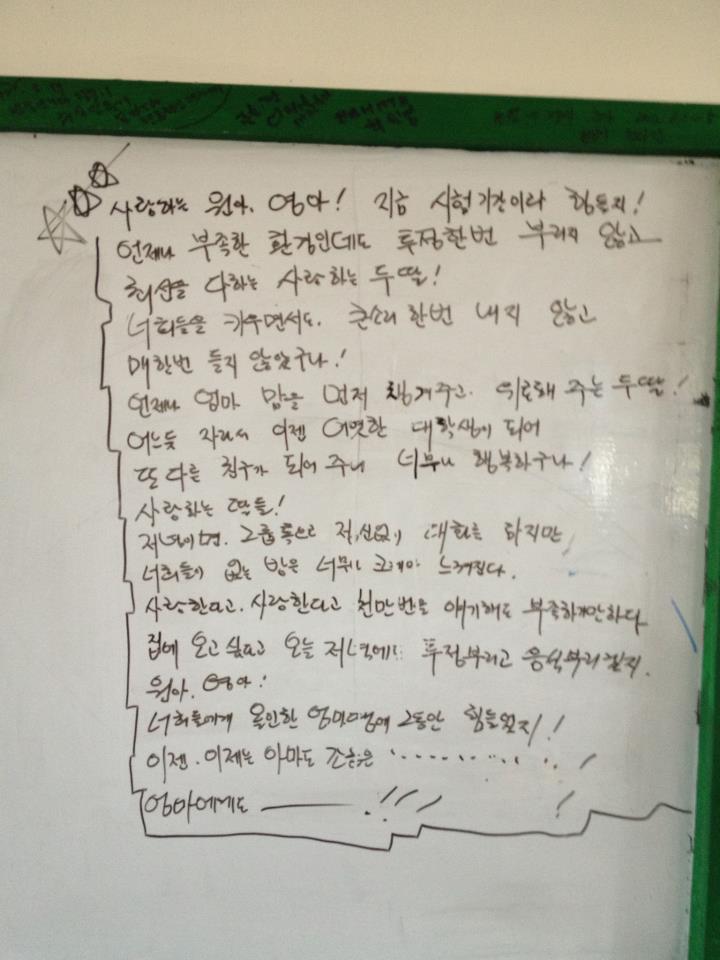 사랑하는 원아. 영아! 지금 시험기간이라 힘들지!
언제나 부족한 환경인데도 투정한번 부리지 않고
최선을 다하는 사랑하는 두딸!
너희들을 키우면서도. 큰소리 한번 내지 않고
매한번 들지 않았구나!
언제나 엄마 맘을 먼저 챙겨주고. 위로해 주는 두딸!
어느듯 자라서 이젠 어엿한 대학생이 되어
또 다른 친구가 되어 주니 너무나 행복하구나!
사랑하는 딸들!
저녁이면. 그룹톡으로 정신없이 대화를 하지만
너희들이 없는 방은 너무나 크게만 느껴진다.
사랑한다고. 사랑한다고 천만번을 얘기해도 부족하기만하다
집에 오고 싶다고 오늘 저녁에도 투정부리고 응석부리겠지.
원아. 영아!
너희들에게 올인한 엄마땜에 그동안 힘들었지!
이젠. 이제는 아마도 조금은 ............!
엄마에게도 ———— .!!! !